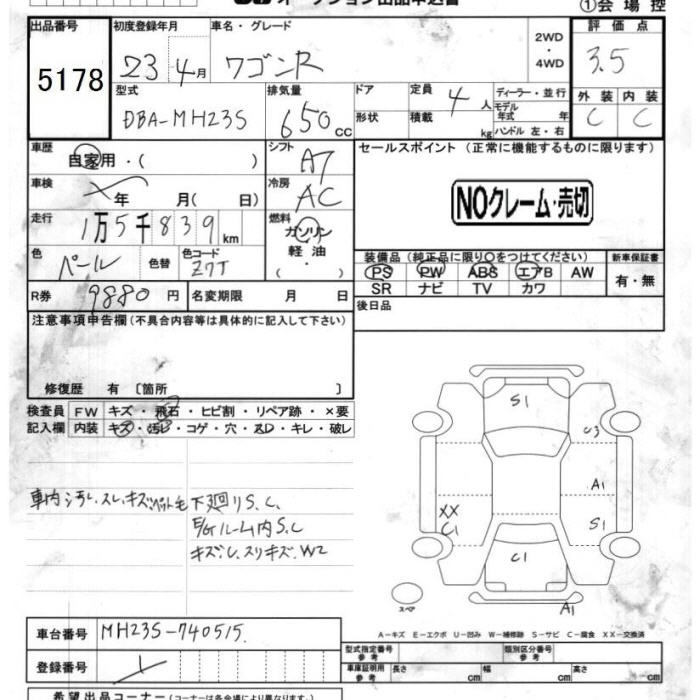 オークション出品申込書
①会場控
出品番号 初度登録年月 車名・グレード 2WD ・4WD 評価点
5178 23 4月 ワゴンR 3.5
型式 排気量 ドア 定員 4人 ディーラー・並行 外装 内装
DBA-MH23S 650cc 形状 積載 kg モデル年式 年 ハンドル 左・右 C C
車歴 自家用・( ) シフト A7 セールスポイント (正常に機能するものに限ります)
車検 年 月( 日) 冷房 AC NOクレーム・売切
走行 1万5千839km 燃料 ガソリン
色 パール 色替 色コード Z7T 軽油・( ) 装備品(純正品に限り○をつけてください) 新車保証書
PS PW ABS エアB AW 有・無
SR ナビ TV カワ
R券 9880円 名変期限 月 日 後日品
注意事項申告欄(不具合内容等は具体的に記入して下さい)
修復歴 有 〔箇所 〕
検査員 FW キズ・飛石・ヒビ割・リペア跡・×要
記入欄 内装 キズ・汚レ・コゲ・穴・ヌレ・キレ・破レ
S1
C3
A1
車内汚レ、スレ、キズ、ペット毛 下廻りS.C. XX C1 S1
E/Gルーム内S.C
キズ、スリキズ、W2 C1
スペア A1
車台番号 MH23S-740515
A-キズ E-エクボ U-凹み W-補修跡 S-サビ C-腐食 XX-交換済
登録番号 型式指定番号 参考 類別区分番号 参考
車庫証明用 参考 長さ cm 幅 cm 高さ cm
希望出品コーナー(コーナーは各会場により異なります。)